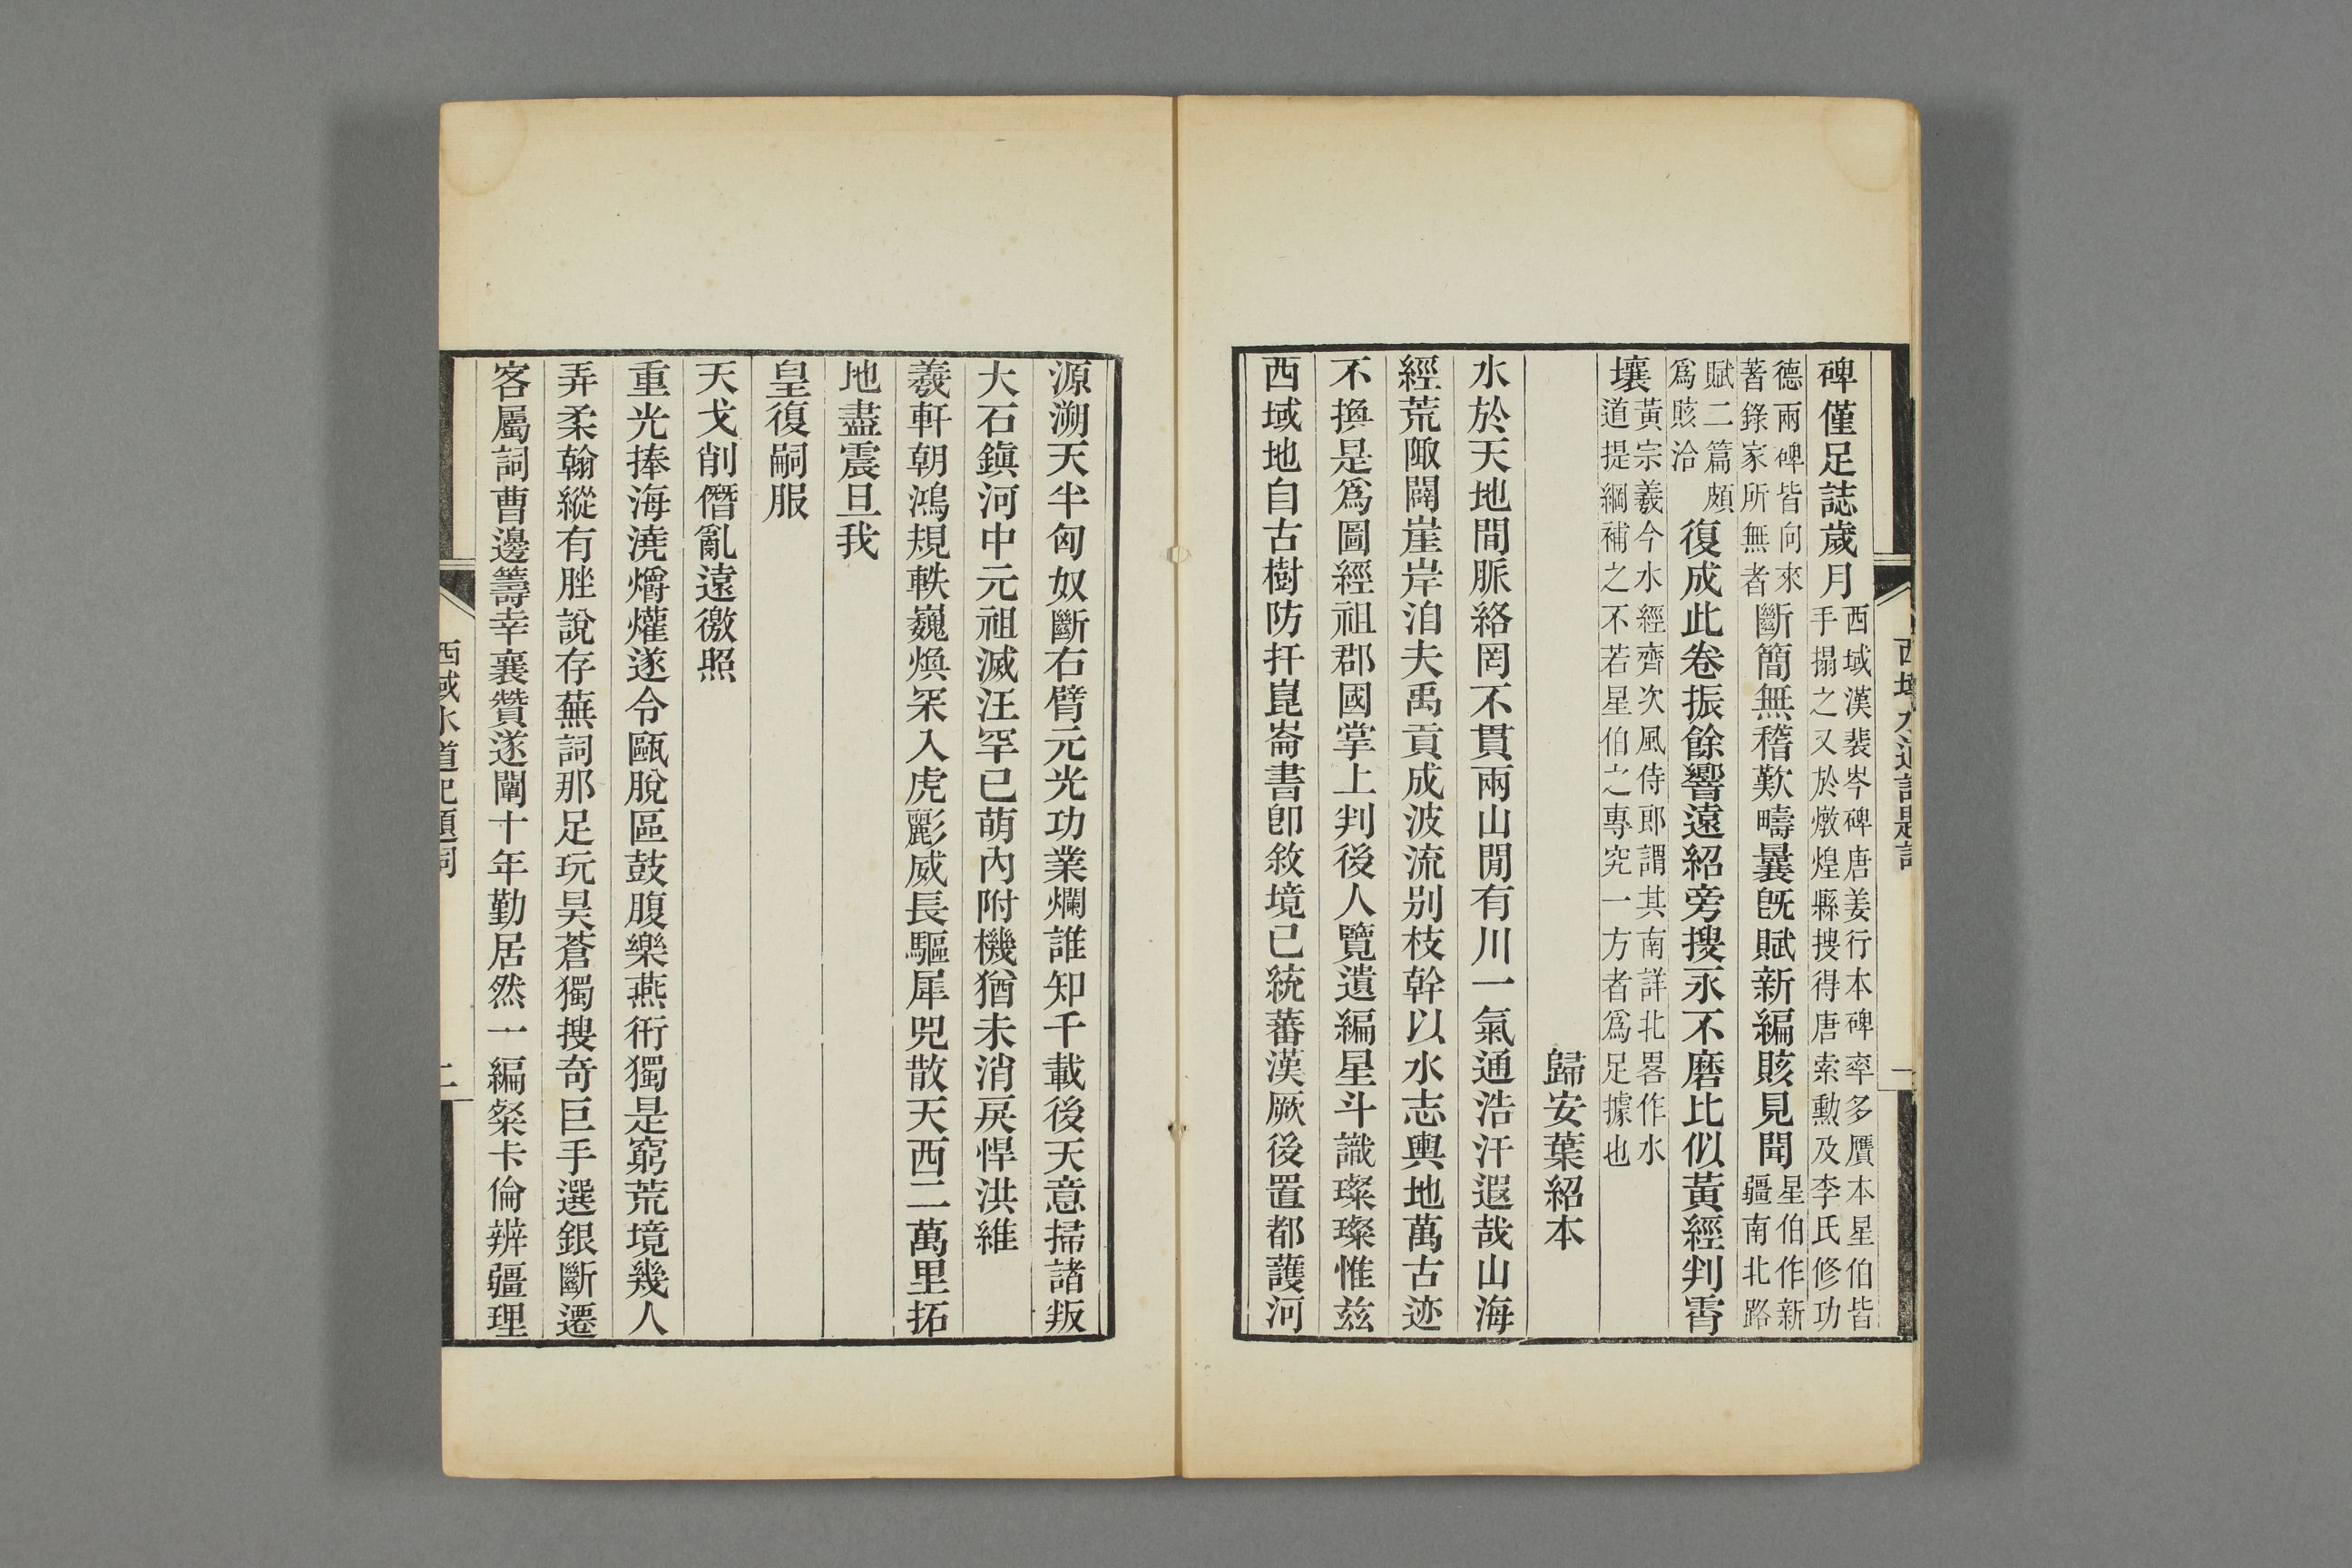 碑僅足誌歲月西域漢裴岑碑唐姜行本碑率多贋本星伯皆手搨之又於燉煌縣搜得唐索勳及李氏修功
德兩碑皆向來著錄家所無者斷簡無稽歎疇曩旣賦新編賅見聞星伯作新疆南北路
賦二篇頗爲賅洽復成此卷振餘響遠紹旁搜永不磨比似黃經判霄
壤黃宗羲今水經齊次風侍郎謂其南詳北畧作水道提綱補之不若星伯之專究一方者爲足據也
歸安葉紹本
水於天地間脈絡罔不貫兩山閒有川一氣通浩汗遐哉山海
經荒陬闢崖岸洎夫禹貢成波流别枝幹以水志輿地萬古迹
不換是爲圖經祖郡國掌上判後人覽遺編星斗識璨璨惟兹
西域地自古樹防扞崑崙書卽敘境已統蕃漢厥後置都護河
源溯天半匈奴斷右臂元光功業爛誰知千載後天意掃諸叛
大石鎭河中元祖滅汪罕已萌內附機猶未消戾悍洪維
羲軒朝鴻規軼巍煥罙入虎彲威長驅犀兕散天西二萬里拓
地盡震旦我
皇復嗣服
天戈削僭亂遠徼照
重光捧海澆爝爟遂令甌脫區鼓腹樂燕衎獨是窮荒境幾人
弄柔翰縱有脞說存蕪詞那足玩昊蒼獨搜奇巨手選銀斷遷
客屬詞曹邊籌幸襄贊遂闡十年勤居然一編粲卡倫辨疆理
西域水道記題詞
二